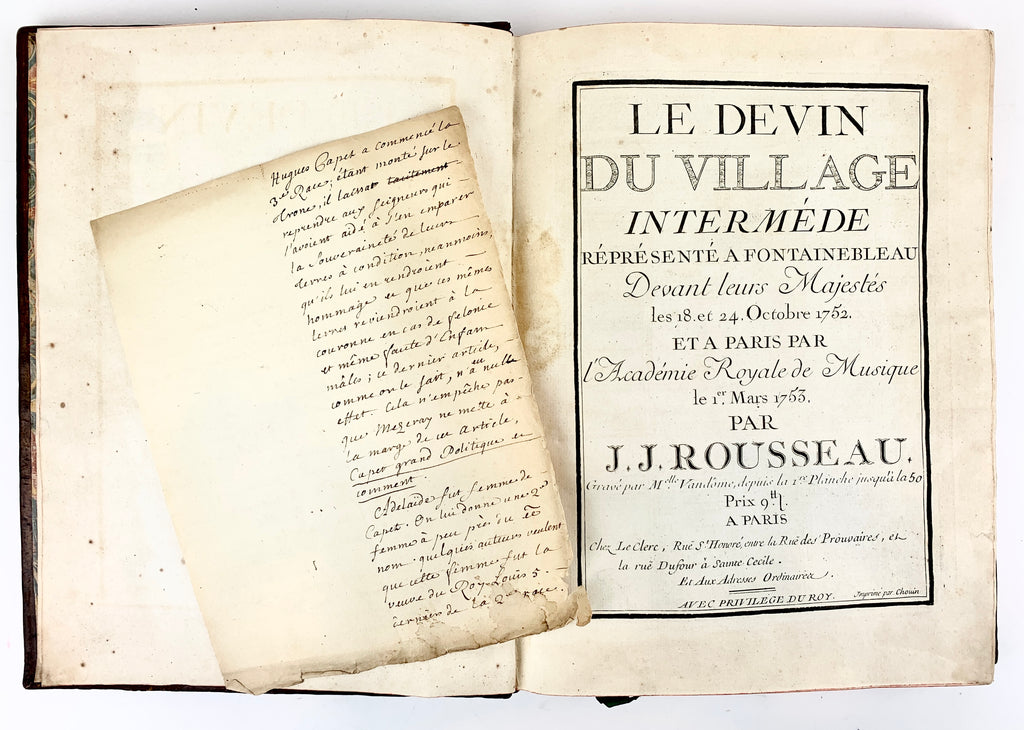 Hugues Capet a commencé la
3.e Race; étant monté sur le
trone, il laissat tacitement
reprendre aux seigneurs qui
l'avoient aidé a s'en emparer
la souveraineté de leurs
terres à condition, neanmoins
qu'ils lui en rendroient
hommage et que ces mêmes
terres reviendroient à la
couronne en cas de felonie
et même faute d'Enfans
mâles; ce dernier article,
comme on le sait, n'a eu nulle
effet. Cela n'empêche pas
que Mezeray ne mette à
la marge de cet article,
Capet grand Politique et
comment.
Adelaide fut femme de
Capet. On lui donne une 2e
femme à peu près du
nom. quelques auteurs veulent
que cette femme fut la
veuve du Roy Louis 5.
dernier de la 2.e race.
LE DEVIN
DU VILLAGE
INTERMÉDE
RÉPRÉSENTÉ A FONTAINEBLEAU
Devant leurs Majestés
les 18. et 24. Octobre 1752.
ET A PARIS PAR
l'Académie Royale de Musique
le 1.er Mars 1753.
PAR
J. J. ROUSSEAU.
Gravé par M.elle Vandôme, depuis la 1.re Planche jusqu'à la 50
Prix 9.tt
A PARIS
Chez Le Clerc, Ruë S.t Honoré, entre la Ruë des Prouvaires, et
la ruë Dufour à Sainte Cecile.
Et Aux Adresses Ordinaires.
AVEC PRIVILEGE DU ROY.
Imprimé par Chouin